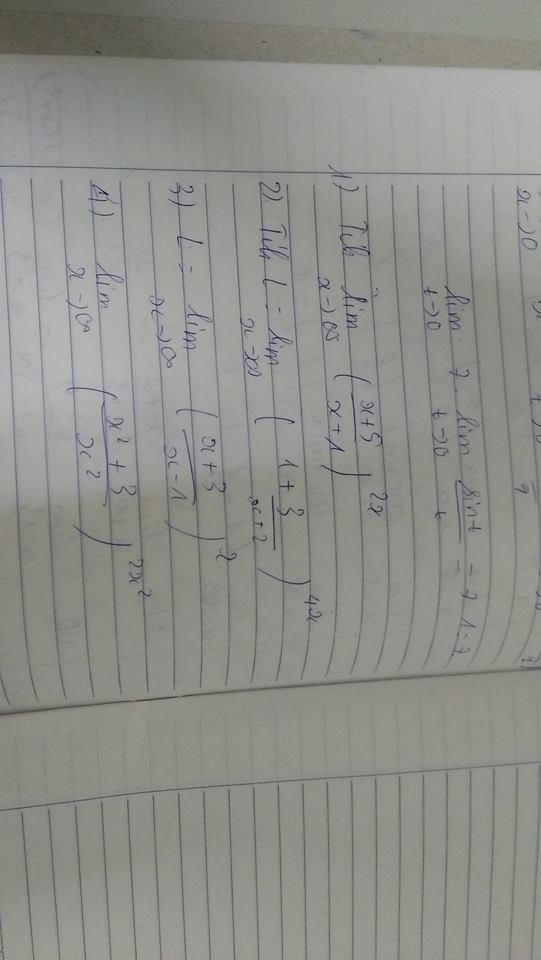 x→0 t→0 7
lim t→0 7. lim t→0 sint/t = 7.1=7
1) Tih lim x→∞ (x+5/x+1)^2x
2) Tih L = lim x→∞ (1+3/x+2)^4x
3) L = lim x→∞ (x+3/x-1)^x
4) lim x→∞ (x²+3/x²)^2x²